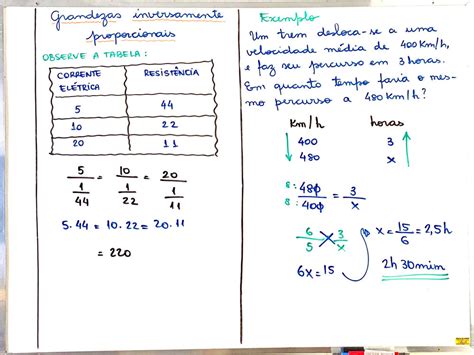 Grandezas inversamente
proporcionais
OBSERVE A TABELA:
CORRENTE ELÉTRICA | RESISTÊNCIA
5 | 44
10 | 22
20 | 11
5/(1/44) = 10/(1/22) = 20/(1/11)
5.44 = 10.22 = 20.11
= 220
Exemplo
Um trem desloca-se a uma
velocidade média de 400 km/h,
e faz seu percurso em 3 horas.
Em quanto tempo faria o mes-
mo percurso a 480 km/h?
km/h horas
↓ 400 3 ↑
480 x
8: 480/8: 400 = 3/x
6/5 3/x
6x = 15
x = 15/6 = 2,5h
2h 30min